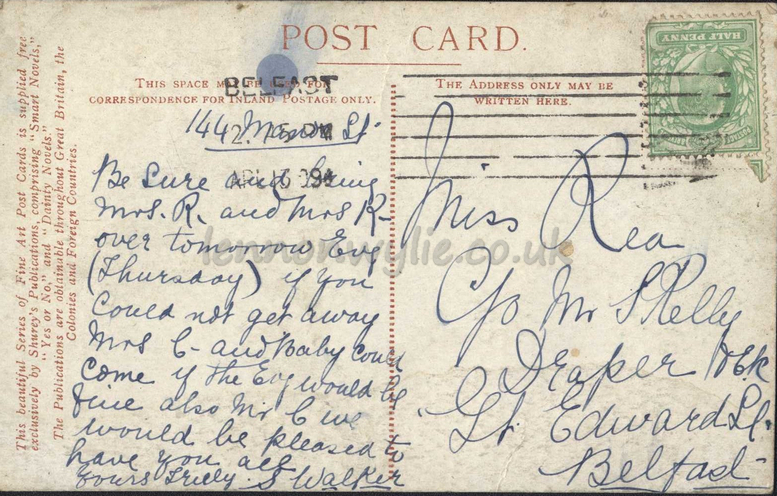 POST CARD.
THIS SPACE MAY BE USED FOR
CORRESPONDENCE FOR INLAND POSTAGE ONLY.
THE ADDRESS ONLY MAY BE
WRITTEN HERE.
This beautiful Series of Fine Art Post Cards is supplied free
exclusively by Shurey's Publications, comprising "Smart Novels,"
"Yes or No," and "Dainty Novels."
The Publications are obtainable throughout Great Britain, the
Colonies and Foreign Countries.
BELFAST
2.15 PM
HALF PENNY
144 Manor St
Be sure and bring
Mrs. R. and Mrs K-
over tomorrow Evg
(Thursday) if you
could not get away
Mrs C- and Baby could
come if the Evg would be
fine also Mr C we
would be pleased to
have you all
yours Truly S Walker
Miss Rea
C/o Mr S Kelly
Draper
Gt. Edward St.
Belfast
lennonwylie.co.uk